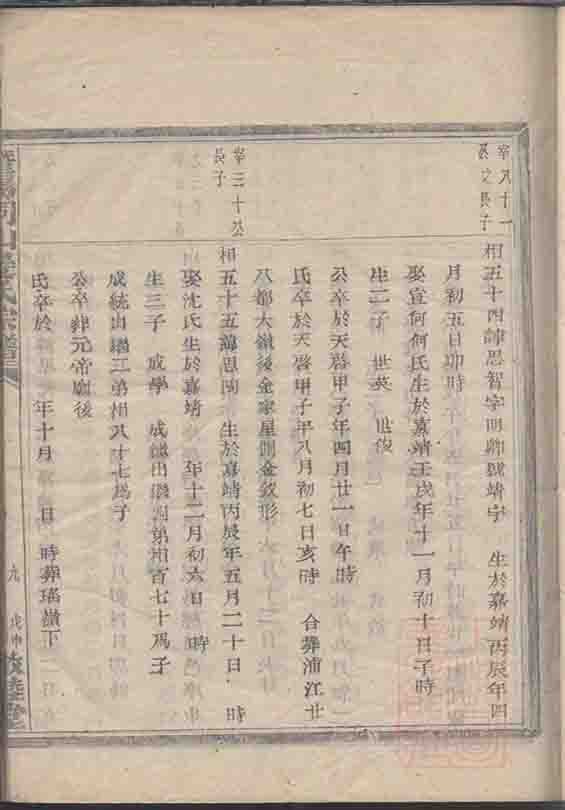 宰八十一
長之長子
相五十四諱思智字明卿號靖宇 生於嘉靖丙辰年四
月初五日卯時
娶宣何何氏生於嘉靖壬戌年十一月初十日子時
生二子 世英 世俊
公卒於天啓甲子年四月廿一日午時
氏卒於天啓甲子年八月初七日亥時 合葬浦江廿
八都大嶺後金家星開金釵形
宰三十公
長子
相五十五諱思 生於嘉靖丙辰年五月二十日 時
娶沈氏生於嘉靖 年十二月初六日 時
生三子 成學 成 出繼 弟相百七十為子
成統出繼三弟相八十七為子
公卒葬元帝廟後
氏卒於 年十月 日 時葬瑤嶺下
山 氏宗譜
九
戊申